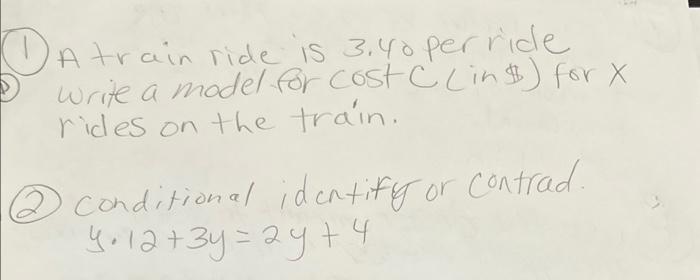 ① A train ride is 3.40 per ride
write a model for cost C (in $) for X
rides on the train.
② conditional identity or contrad.
y·12+3y=2y+4